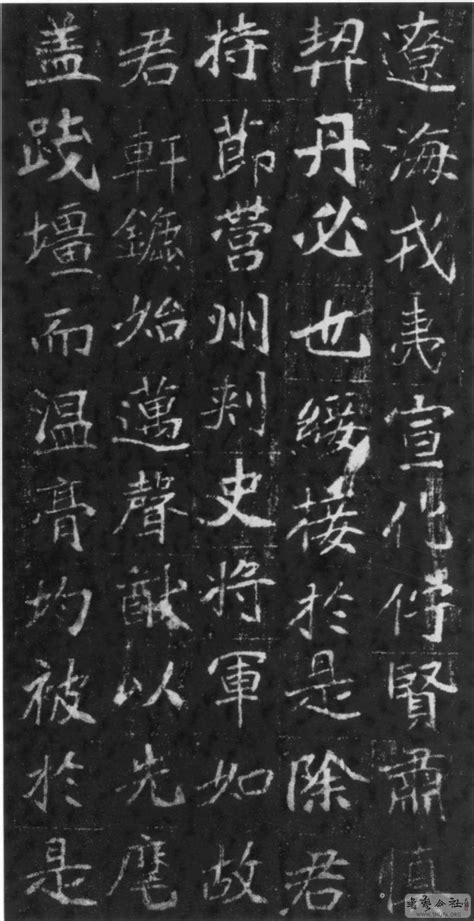 遼海戎夷宣化佇賢肅慎
契丹必也綏接於是除君
持節營州刾史將軍如故
君軒鑣始邁聲猷以先麾
盖踐壃而温膏均被於是